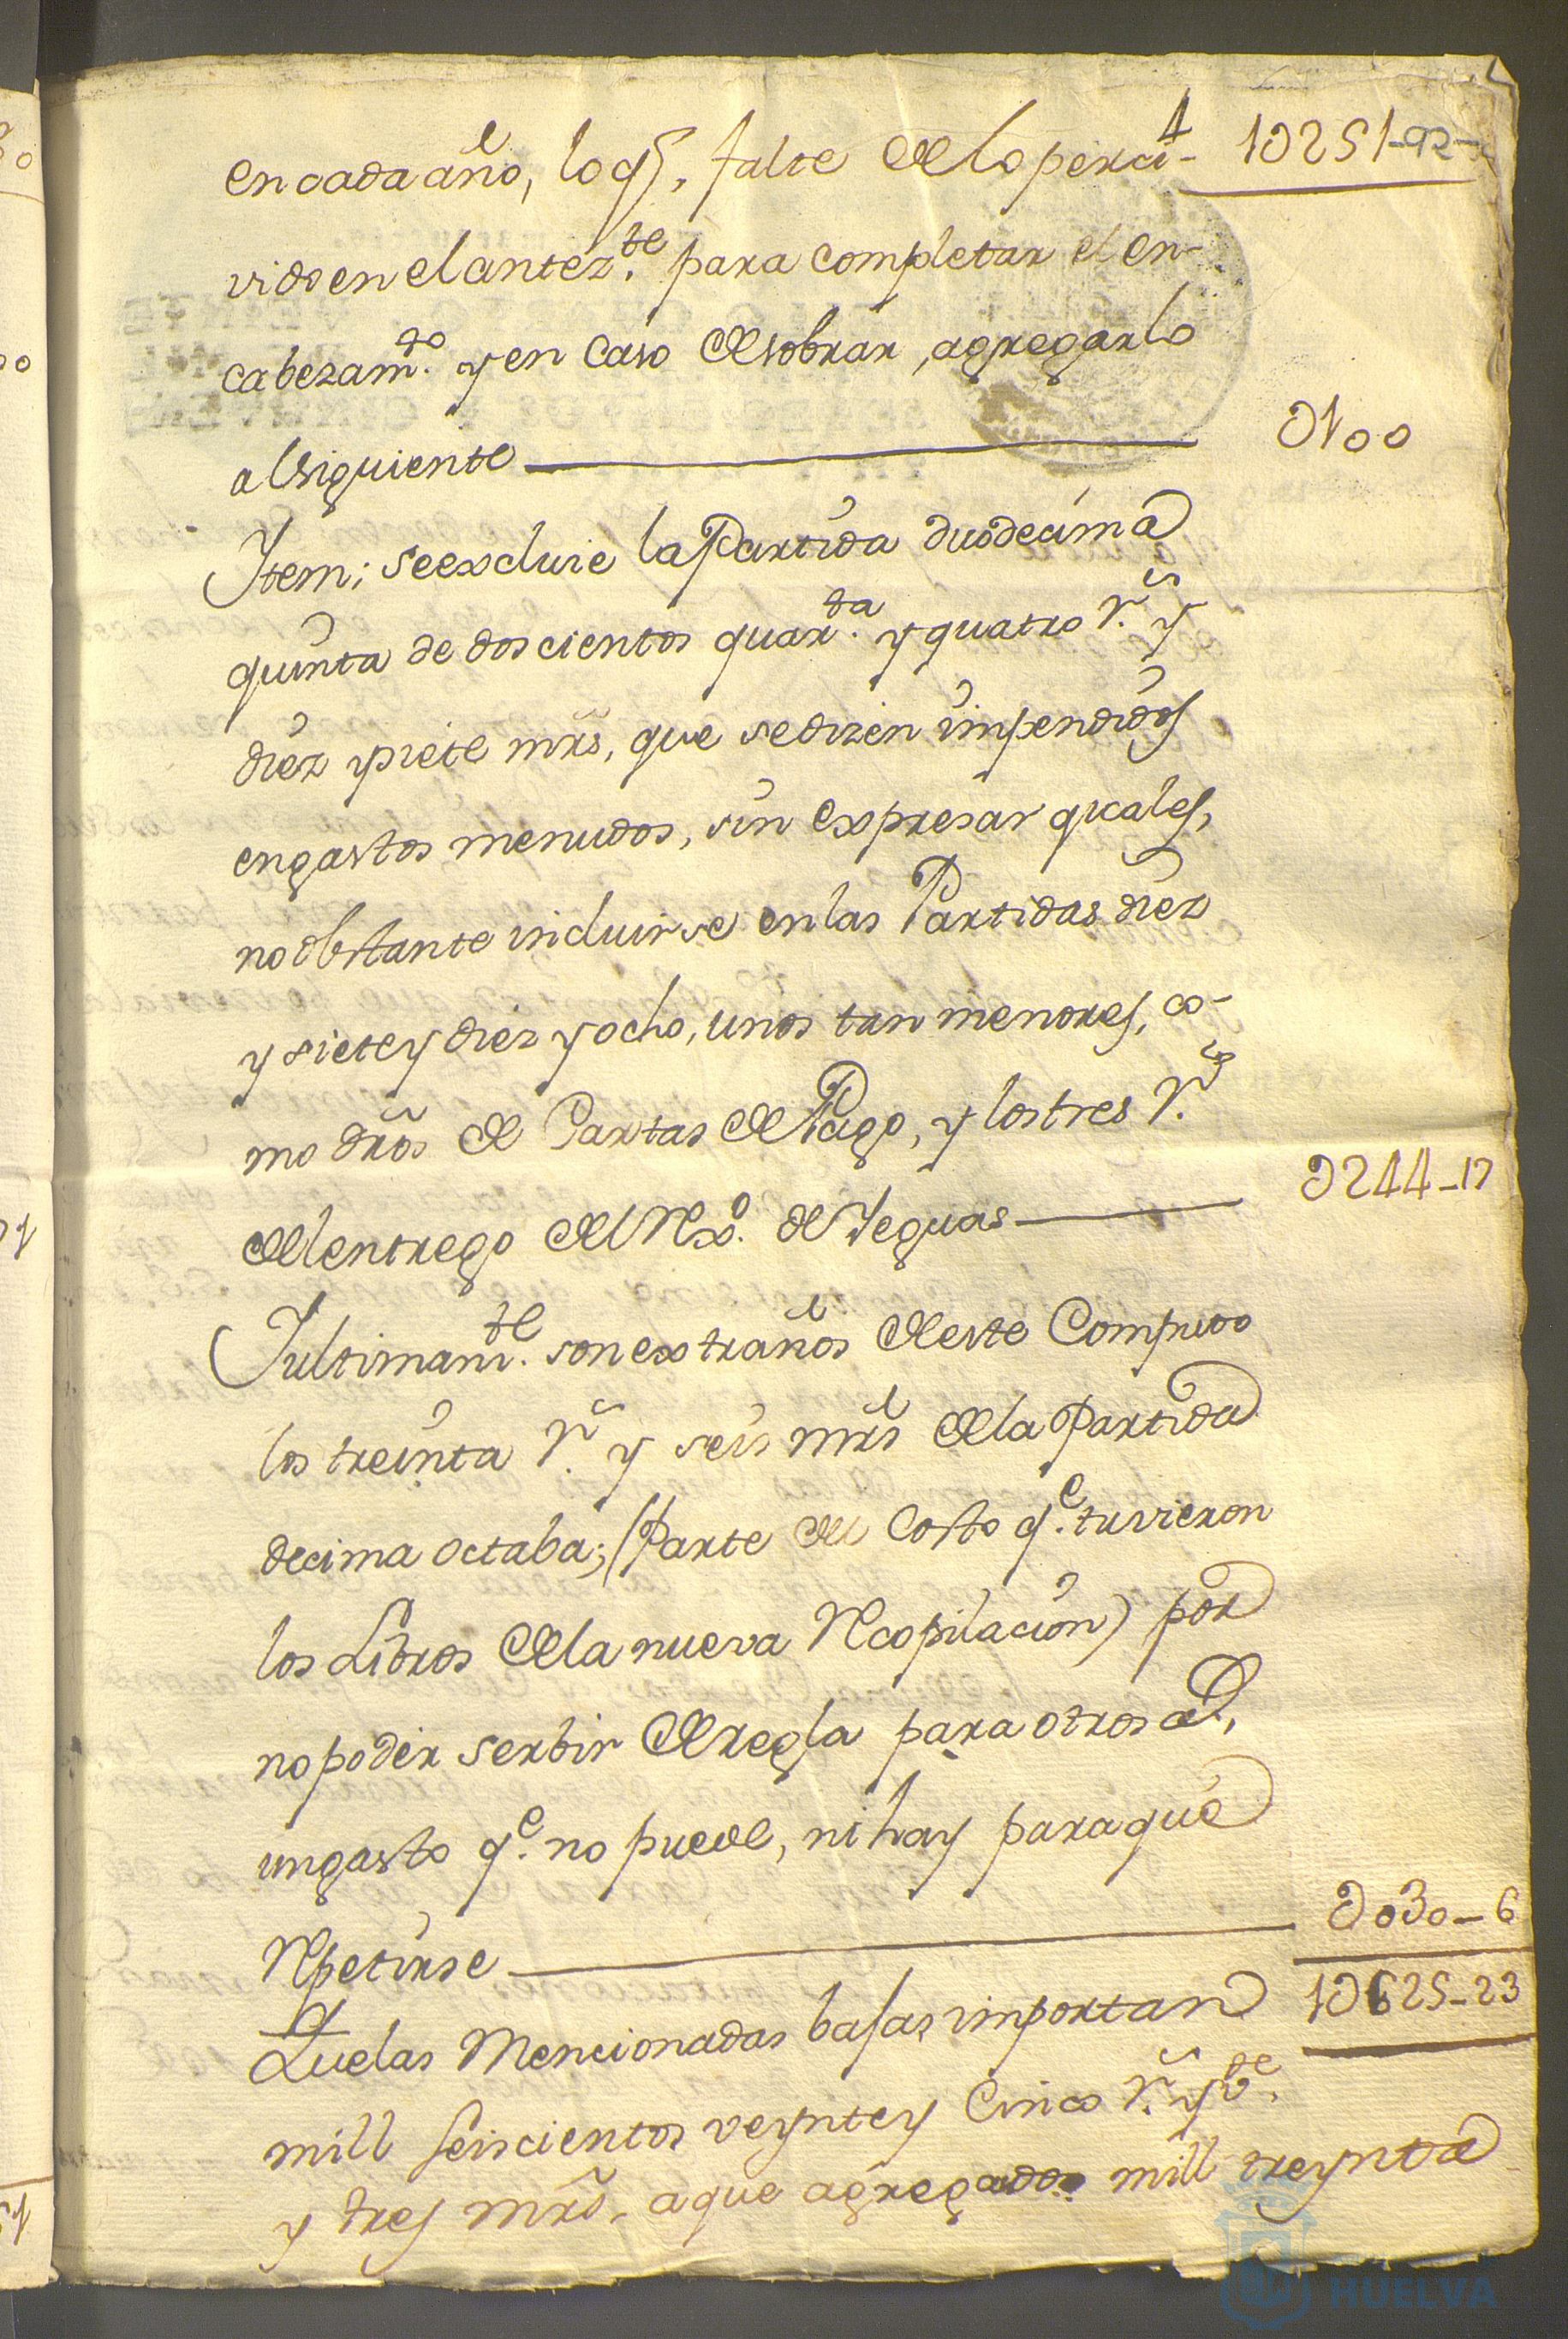 4
en cada año, lo q.e falte de lo perci- 1Ɔ251-
vido en el antez.te para completar el en-
cabezam.to y en caso de sobrar, agregarlo
al siguiente Ɔ100
Item; se excluie la Partida duodecima
quinta de doscientos quar.ta y quatro r.s y
diez y siete mrs, que se dizen impendidos
en gastos menudos, sin expresar quales,
no obstante incluirse en las Partidas diez
y siete y diez y ocho, unos tan menores, co-
mo dros de Cartas de Pago, y los tres r.s
del entrego del Rexo. de Yeguas Ɔ244-17
Y ultimam.te son extraños de este Computo
los treinta r.s y seis mrs de la Partida
decima octaba; (Parte del Costo q.e tuvieron
los Libros de la nueva Recopilacion) por
no poder serbir de regla para otros a.s,
un gasto q.e no puede, ni hay para que
Repetirse Ɔ030-6
Que las Mencionadas bajas importan 1Ɔ625-23
mill seiscientos veynte y Cinco r.s y v.te
y tres mrs, a que agregados mill treynta
HUELVA